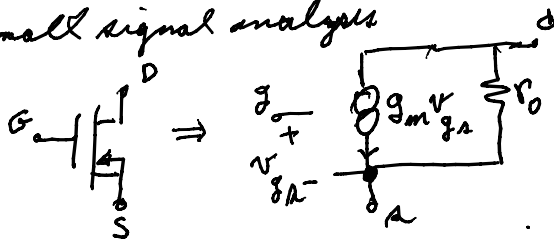 small signal analysis
D
G
S
⇒
g
+
v gs
-
g m v gs
r o
d
s